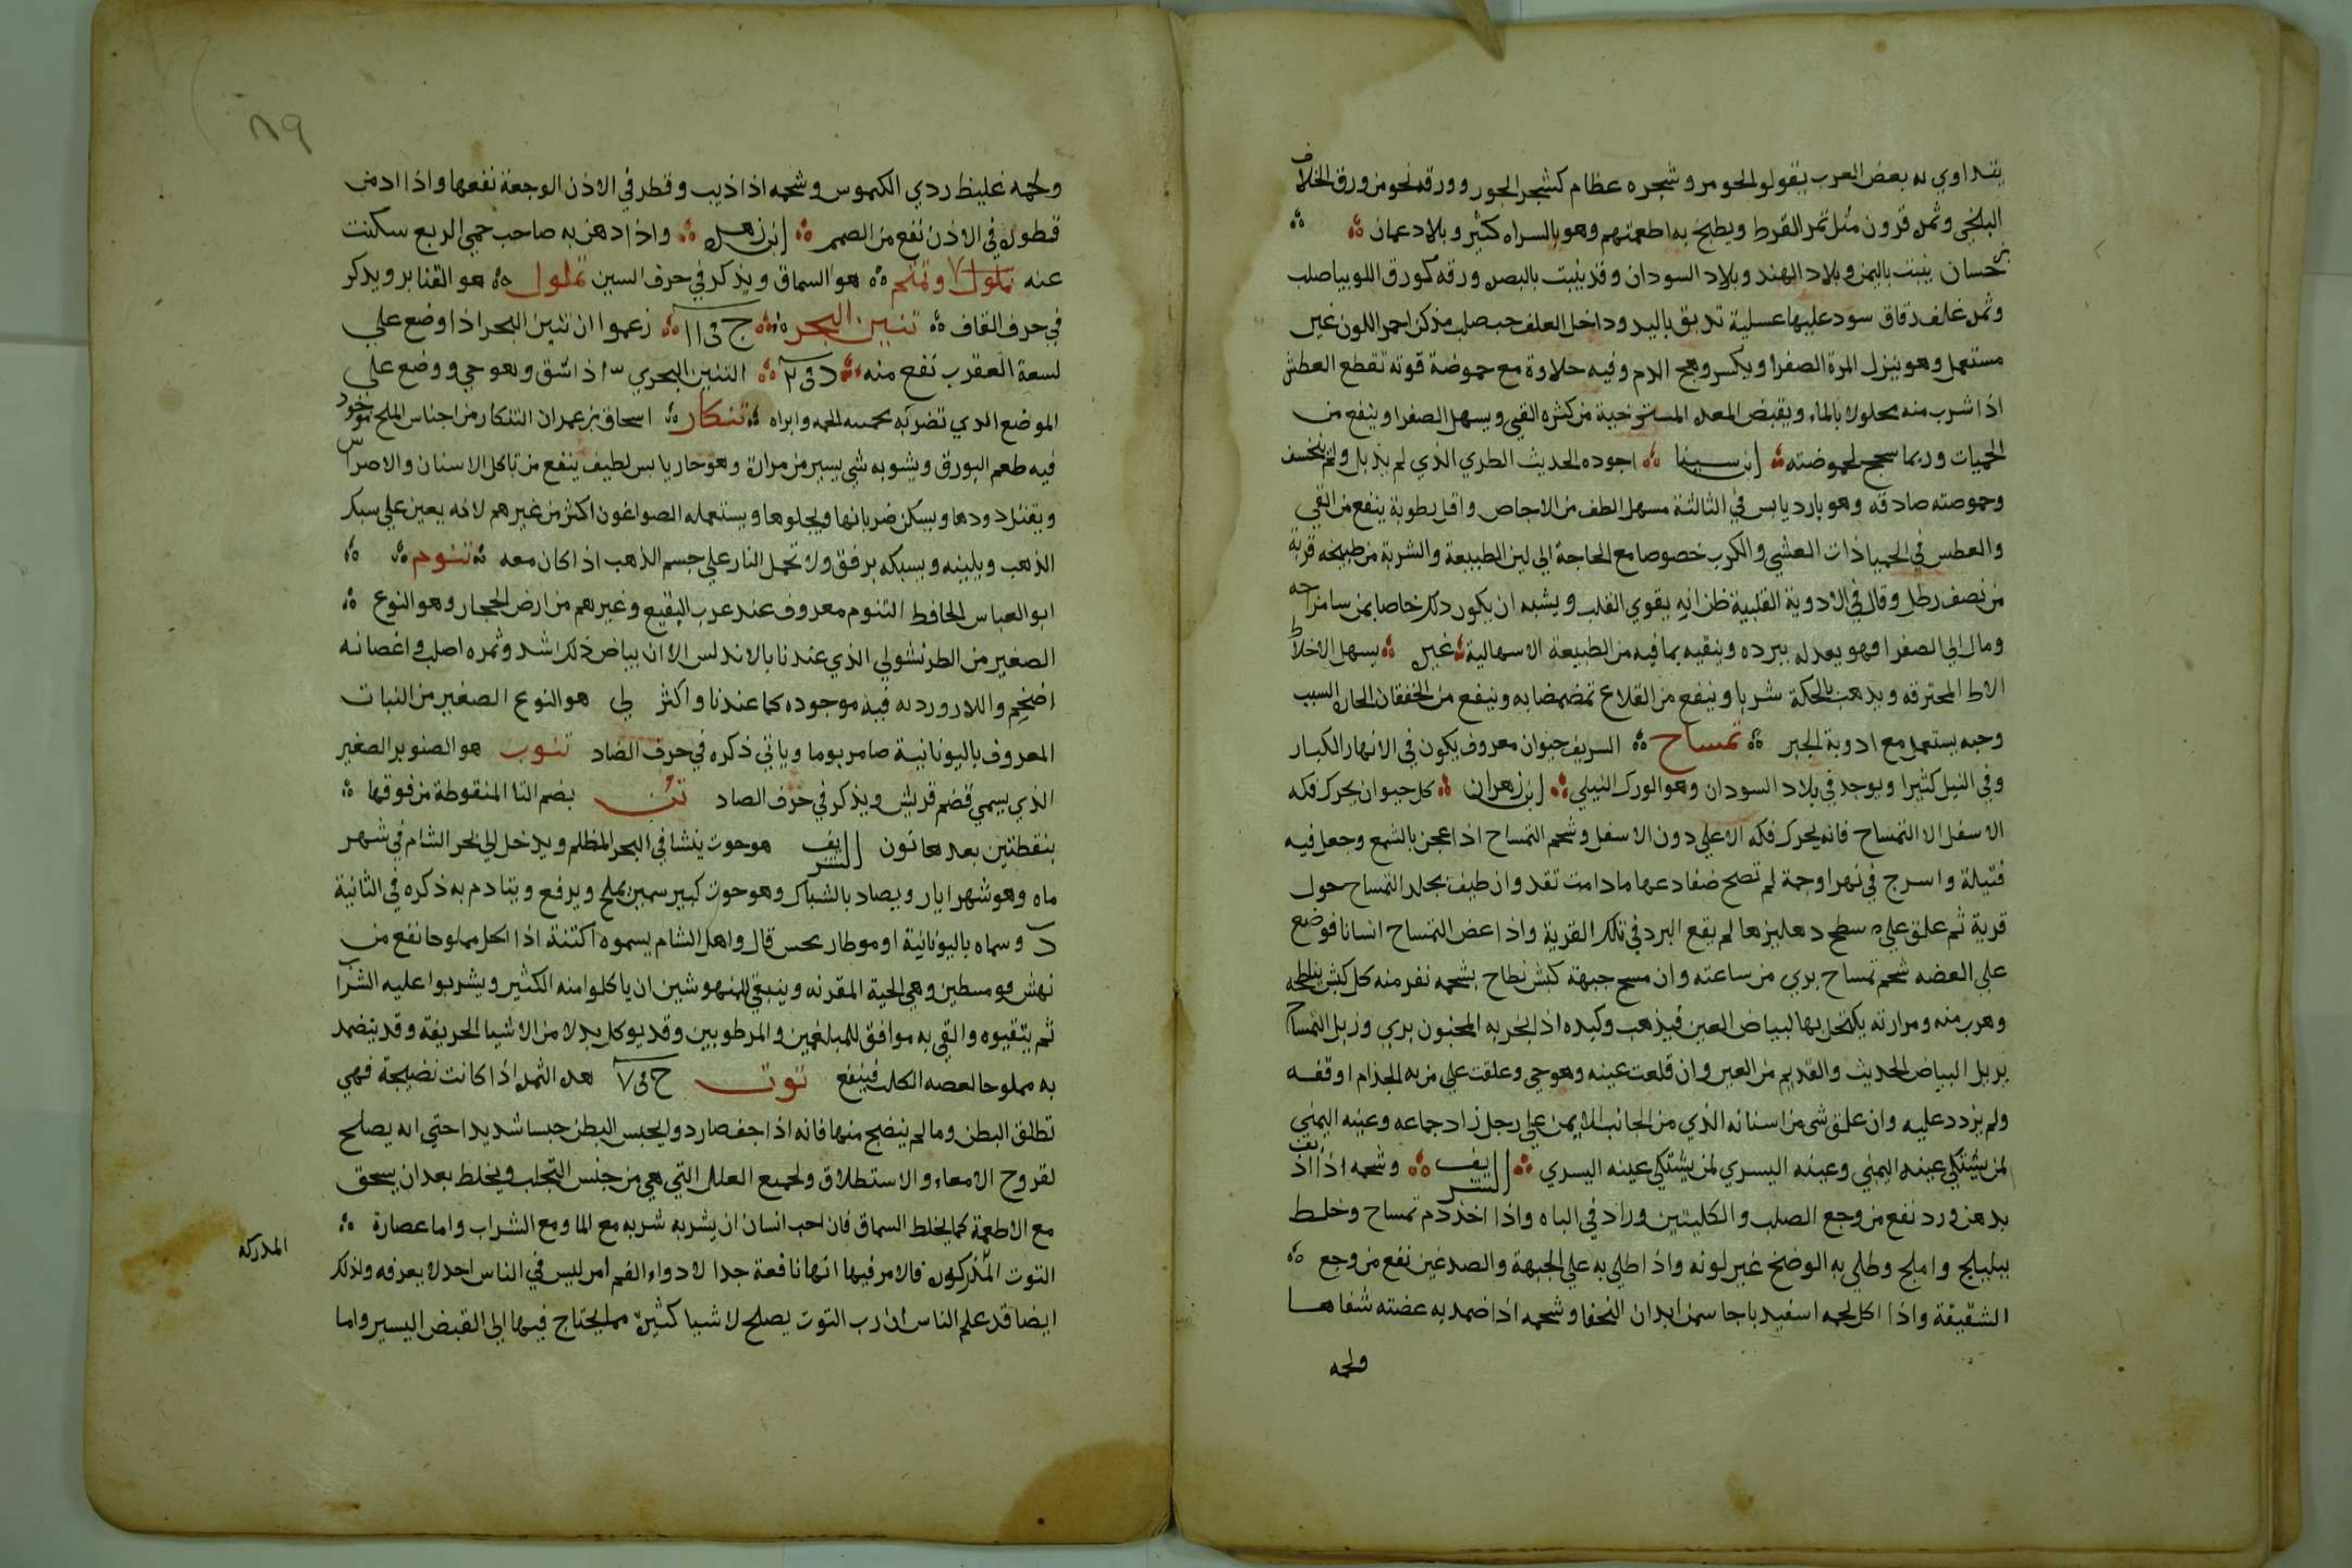 يتداوي به بعض العرب يقولو الحومر وشجره عظام كشجر الجور وورقه نحو من ورق الخلاف
البلخي وثمره قرون مثل ثمر القرط ويطبخ به اطعمتهم وهو بالسراه كثير وبلاد عمان
حسان ينبت باليمن وبلاد الهند وبلاد السودان وقد ينبت بالبصره ورقه كورق اللوبيا صلب
وثمره غلف دقاق سود عليها عسلية تدبق باليد وداخل الغلف حب صلب مزكن احمر اللون غير
مستعمل وهو ينزل المرة الصفرا ويكسر وهج الدم وفيه حلاوة مع حموضة قوته تقطع العطش
اذا شرب منه محلولا بالماء ويقبض المعده المسترخية من كثره القيي ويسهل الصفرا وينفع من
الحميات وربما سجح لحموضته ابن سينا اجوده الحديث الطري الذي لم يذبل ولم يتخسف
وحموضته صادقه وهو بارد يابس في الثالثة مسهل الطف من الاجاص واقل رطوبة ينفع من القي
والعطس في الحميا ذات الغشي والكرب خصوصا مع الحاجة الي لين الطبيعة والشربة من طبيخه قربة
من نصف رطل وقال في الادوية القلبية ظن انه يقوي القلب ويشبه ان يكون ذلك خاصا بمن سا مزاجه
ومال الي الصفرا فهو يعدله ببرده وينقيه بما فيه من الطبيعة الاسهالية غيره يسهل الاخلاط
الاط المحترقه ويذهب بالحكة شربا وينفع من القلاع تمضمضا به وينفع من الخفقان الحار السبب
وحبه يستعمل مع ادوية الجبر تمساح السريف حيوان معروف يكون في الانهار الكبار
وفي النيل كثيرا ويوجد في بلاد السودان وهو الورك النيلي ابن زهران كل حيوان يحرك فكه
الاسفل الا التمساح فانه يحرك فكه الاعلي دون الاسفل وشحم التمساح اذا عجن بالشمع وجعل فيه
فتيلة واسرج في نهر او جمة لم تصح ضفادعها ما دامت تقد وان طيف بجلد التمساح حول
قرية ثم علق علي سطح دهليزها لم يقع البرد في تلك القرية واذا عض التمساح انسانا فوضع
علي العضه شحم تمساح بري من ساعته وان مسح جبهة كبش نطاح بشحمه نفر منه كل كبش يناطحه
وهرب منه ومرارته يكتحل بها لبياض العين فيذهب وكبده اذا بخر به المجنون بري وزبل التمساح
يزيل البياض الحديث والقديم من العين وان قلعت عينه وهو حي وعلقت علي من به الجذام اوقفه
ولم يزدد عليه وان علق شي من اسنانه الذي من الجانب الايمن علي رجل زاد جماعه وعينه اليمني
لمن يشتكي عينه اليمني وعينه اليسري لمن يشتكي عينه اليسري الشريف وشحمه اذا اذيف
بدهن ورد نفع من وجع الصلب والكليتين وزاد في الباه واذا اخذ دم تمساح وخلط
ببليلج واملج وطلي به الوضخ غير لونه واذا طلي به علي الجبهة والصدغين نفع من وجع
الشقيقة واذا اكل لحمه اسفيدباجا سمن ابدان النحفا وشحمه اذا ضمد به عضته شفاها
ولحمه
٨٩
ولحمه غليظ ردي الكيموس وشحمه اذا اذيب وقطر في الاذن الوجعة نفعها واذا ادمن
قطوره في الاذن نفع من الصمم ابن زهر واذا دهن به صاحب حمي الربع سكنت
عنه تملول وتمتم هو السماق ويذكر في حرف السين تملول هو القنابر ويذكر
في حرف القاف تنين البحر ج في ١١ زعموا ان تنين البحر اذا وضع علي
لسعة العقرب نفع منه د في ٢ التنين البحري اذا شق وهو حي ووضع علي
الموضع الذي تضر به وابراه تنكار اسحاق بن عمران التنكار من اجناس الملح موجود
فيه طعم البورق ويشوبه شي يسير من مرارة وهو حار يابس لطيف ينفع من تاكل الاسنان والاضراس
ويقتل دودها ويسكن ضربانها ويجلوها ويستعمله الصواغون اكثر من غيرهم لانه يعين علي سبك
الذهب ويلينه ويسبكه برفق ولا تحمل النار علي جسم الذهب اذا كان معه تنوم
ابو العباس الحافط التنوم معروف عند عرب البقيع وغيرهم من ارض الحجار وهو النوع
الصغير من الطرنشولي الذي عندنا بالاندلس الا ان بياض ذلك اشد وثمره اصلب واغصانه
اضخم واللازوردية فيه موجوده كما عندنا واكثر لي هو النوع الصغير من النبات
المعروف باليونانية صامريوما وياتي ذكره في حرف الضاد تنوب هو الصنوبر الصغير
الذي يسمي قضم قريش ويذكر في حرف الصاد تن بضم التا المنقوطة من فوقها
بنقطتين بعدها نون الشريف هو حوت ينشا في البحر المظلم ويدخل الي بحر الشام في شهر
ماه وهو شهر ايار ويصاد بالشباك وهو حوت كبير سمين يملح ويرفع ويتادم به ذكره في الثانية
د وسماه باليونانية اوموطاريحس قال واهل الشام يسموه اكتنة اذا اكل مملوحا نفع من
نهش فومسطين وهي الحية المقرنه وينبغي للمنهوشين ان ياكلوا منه الكثير ويشربوا عليه الشراب
ثم يتقيوه والقي به موافق للمبلغمين والمرطوبين وقد يوكل بدلا من الاشيا الحريفة وقد يتضمد
به مملوحا لعضه الكلب فينفع توت ج في ٧ هده الثمره اذا كانت نضيجة فهي
تطلق البطن وما لم ينضج منها فانه اذا جف صار دوا يحبس البطن حبسا شديدا حتي انه يصلح
لقروح الامعاء والاستطلاق ولجميع العلل التي هي من جنس التجلب ويخلط بعد ان يسحق
مع الاطعمة كما يخلط السماق فان احب انسان ان يشربه شربه مع الما ومع الشراب واما عصارة
التوت المدركه فالامر فيها انها نافعة جدا لادواء الفم امر ليس في الناس احد لا يعرفه ولذلك
المدركه
ايضا قد علم الناس ان رب التوت يصلح لاشيا كثيرة مما يحتاج فيها الي القبض اليسير واما